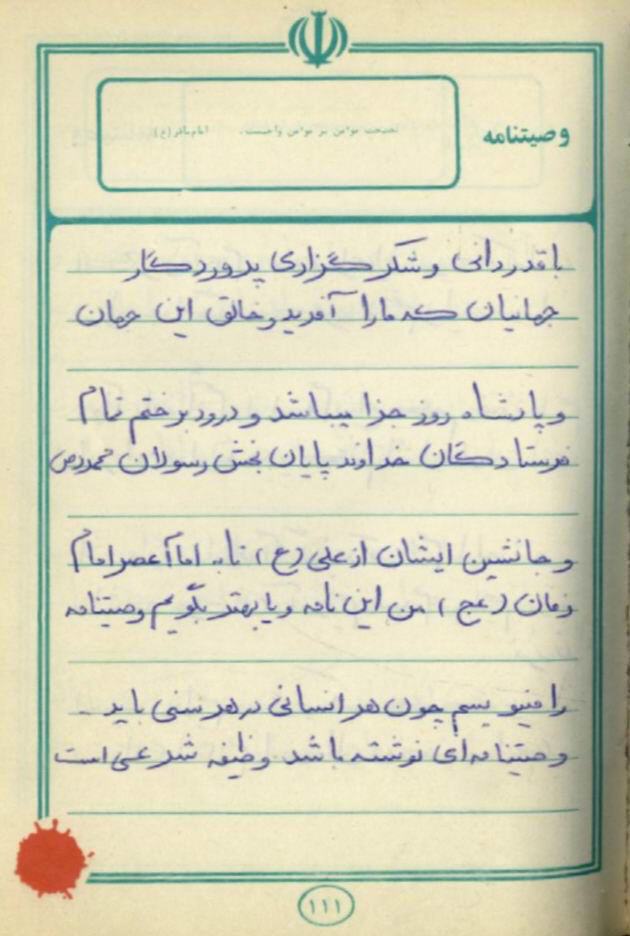 وصیتنامه
نصیحت مؤمن بر مؤمن واجبست. امام باقر (ع)
با قدردانی و شکر گزاری پروردگار
جهانیان که ما را آفرید و خالق این جهان
و پادشاه روز جزا میباشد و درود بر ختم تمام
فرستادگان خداوند پایان بخش رسولان محمد (ص
و جانشین ایشان از علی (ع) تا به امام عصر امام
زمان (عج) من این نامه و یا بهتر بگویم وصیتنامه
را مینویسم چون هر انسانی در هر سنی باید
وصیتنامه‌ای نوشته باشد وظیفه شرعی است
۱۱۱